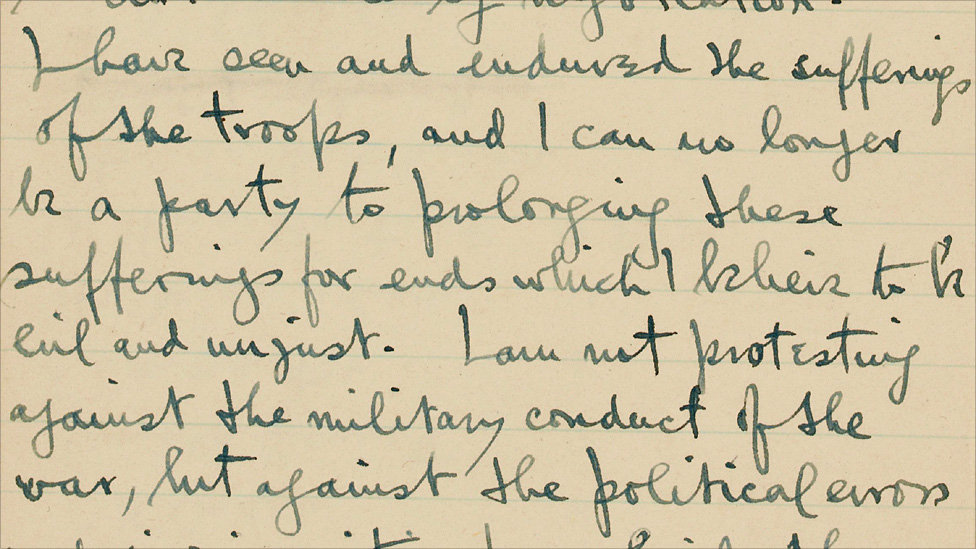 of negotiation.
I have seen and endured the sufferings
of the troops, and I can no longer
be a party to prolonging these
sufferings for ends which I believe to be
evil and unjust. I am not protesting
against the military conduct of the
war, but against the political errors